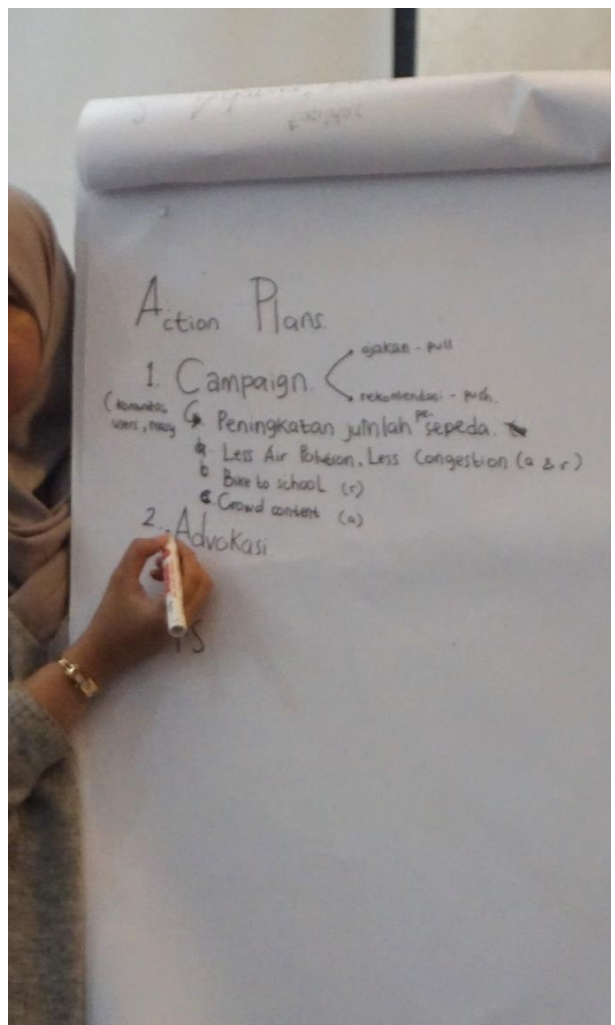 Action Plans.
ajakan - pull
1. Campaign.
rekomendasi - push.
(komunitas
users, 
Peningkatan jumlah pe-sepeda.
a. Less Air Polution, Less Congestion (a & r)
b Bike to school (r)
c. Crowd content (a)
2. Advokasi